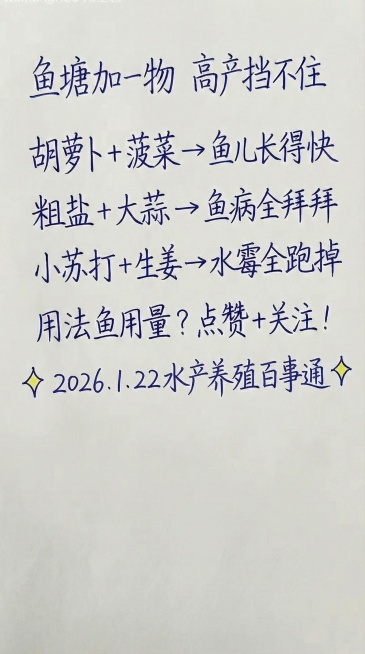 鱼塘加一物 高产挡不住
胡萝卜+菠菜→鱼儿长得快
粗盐+大蒜→鱼病全拜拜
小苏打+生姜→水霉全跑掉
用法鱼用量？点赞+关注！
2026.1.22水产养殖百事通